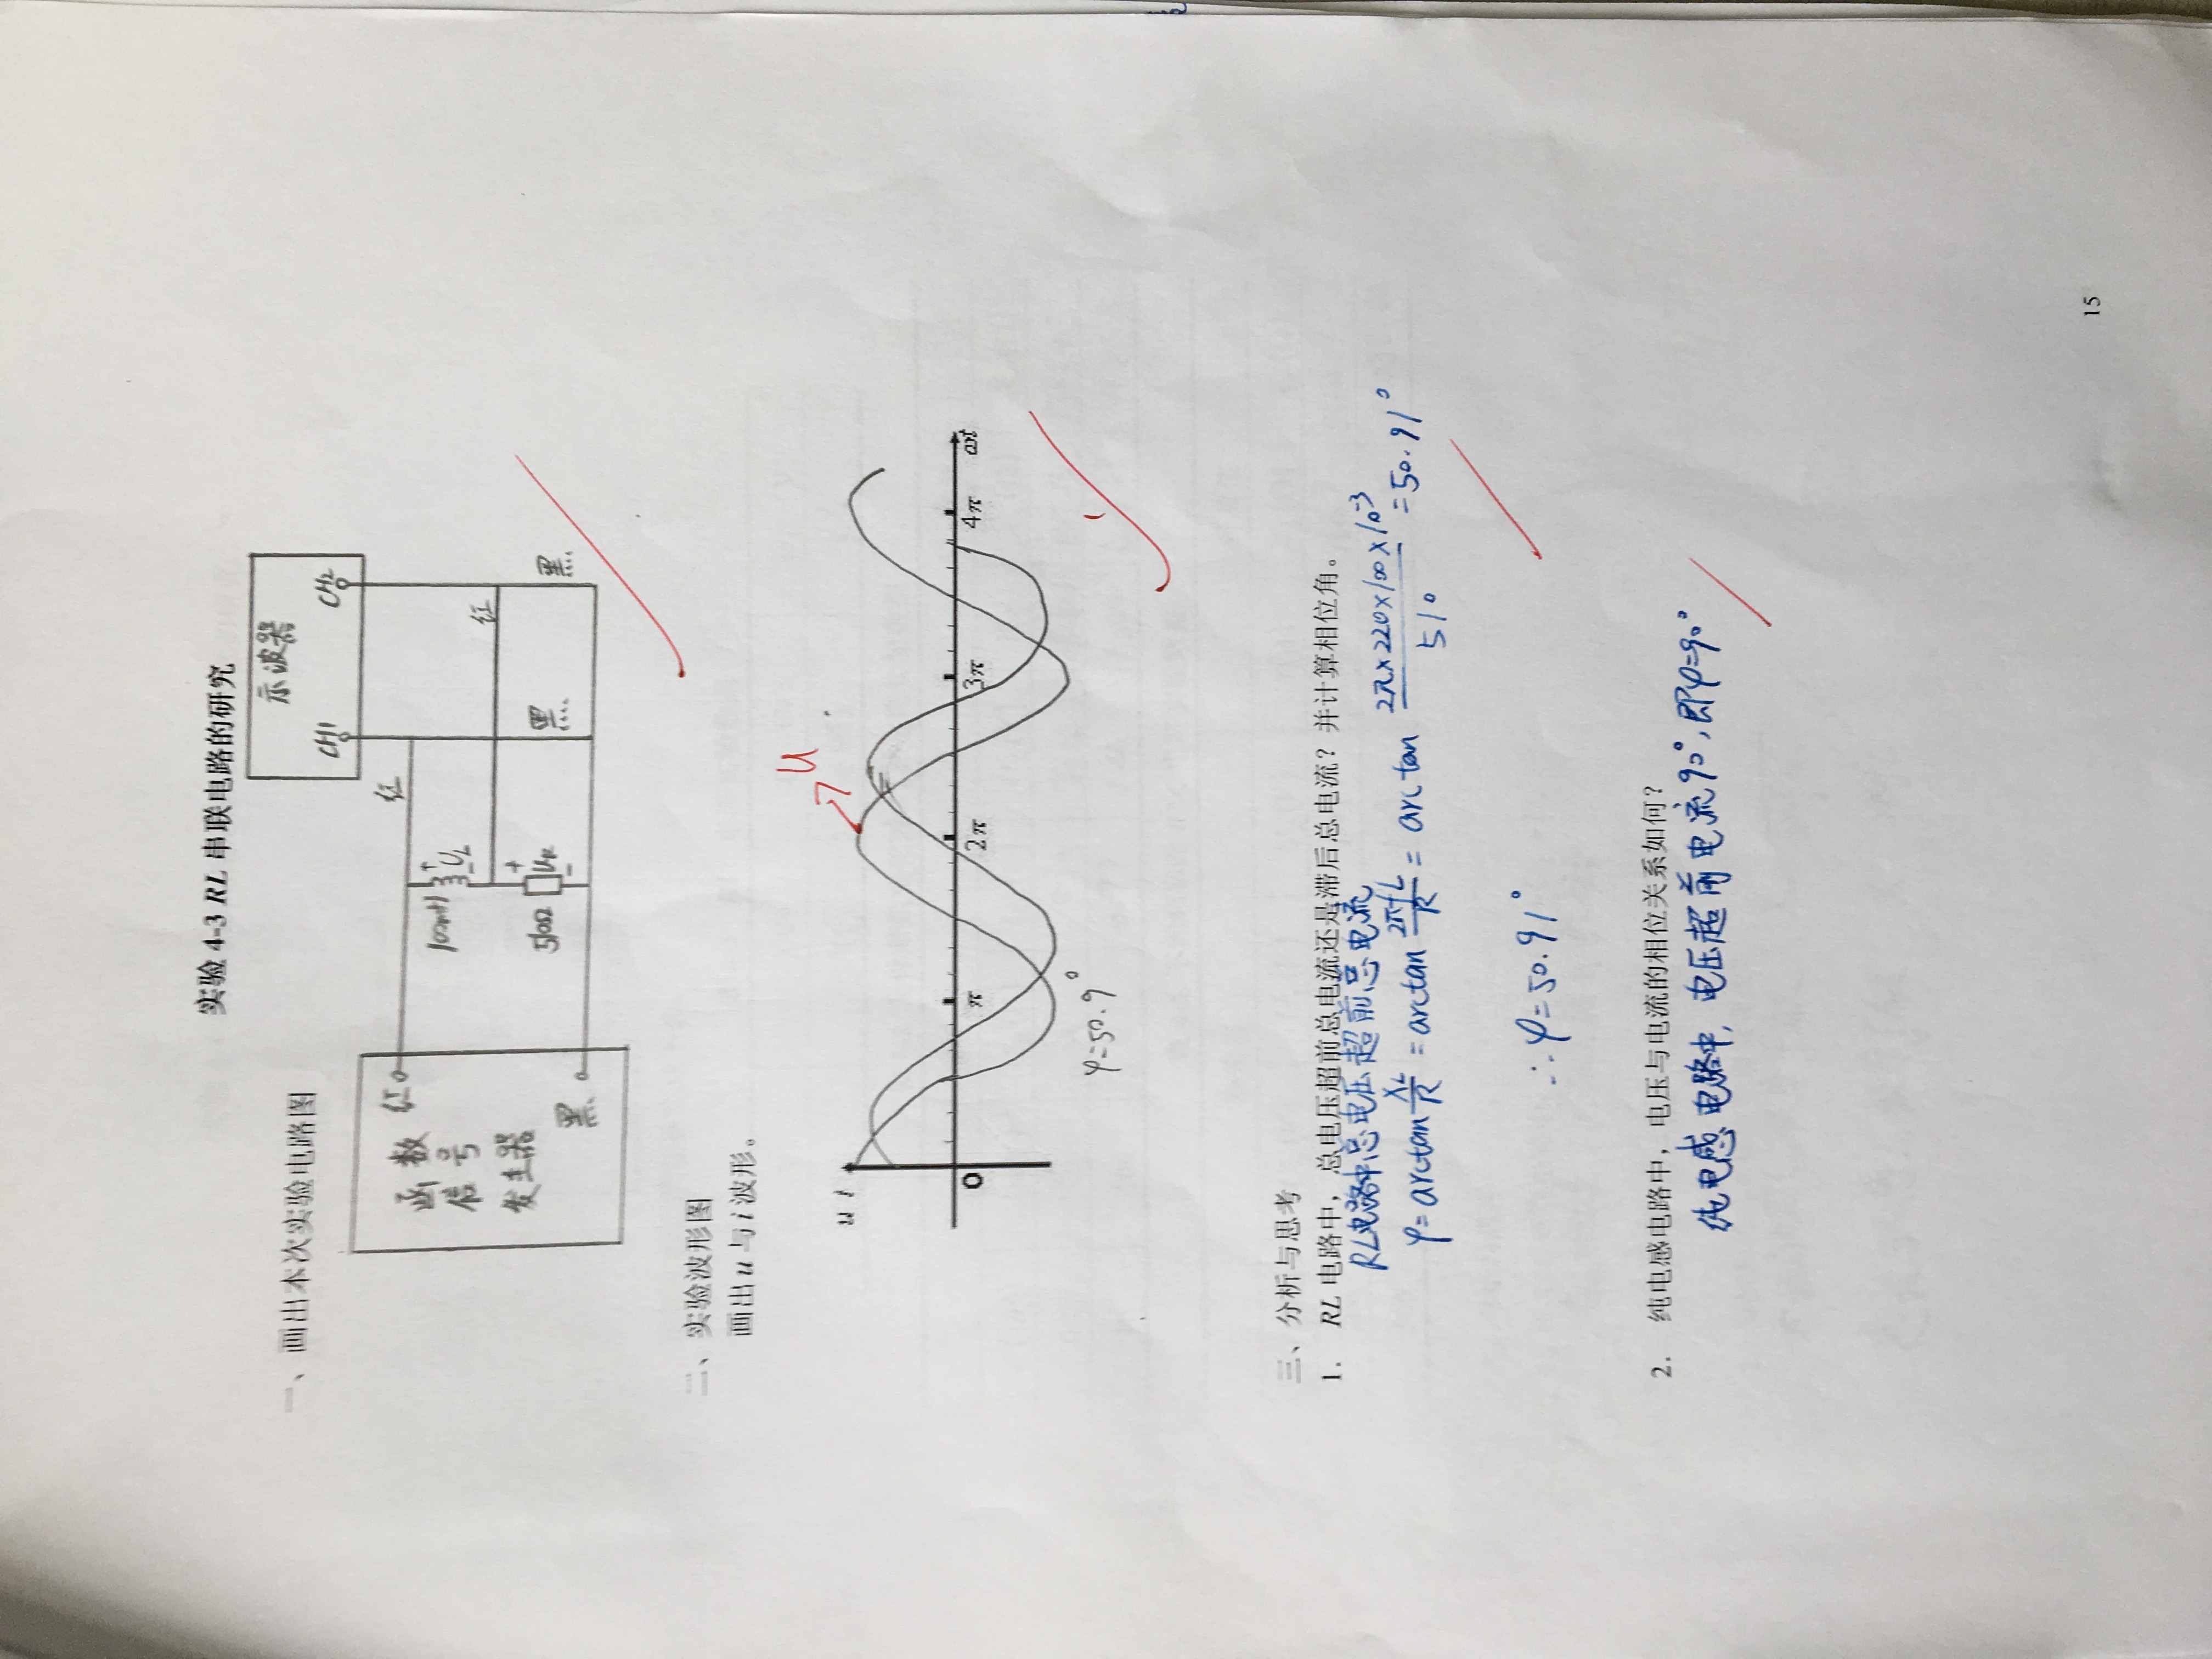 实验 4-3 RL 串联电路的研究
一、画出本次实验电路图
示波器
CH1 CH2
函数
信号
发生器
红
黑
红
100mH
+
UL
-
红
510Ω
+
UR
-
黑
黑
二、实验波形图
画出 u 与 i 波形。
u
u i
O π 2π 3π 4π ωt
φ=50.9°
三、分析与思考
1. RL 电路中，总电压超前总电流还是滞后总电流？并计算相位角。
RL电路中总电压超前总电流
φ=arctan XL/R =arctan 2πfL/R = arctan 2π×220×100×10⁻³/510 =50.91°
∴φ=50.91°
2. 纯电感电路中，电压与电流的相位关系如何？
纯电感电路中，电压超前电流90°，即φ=90°
15